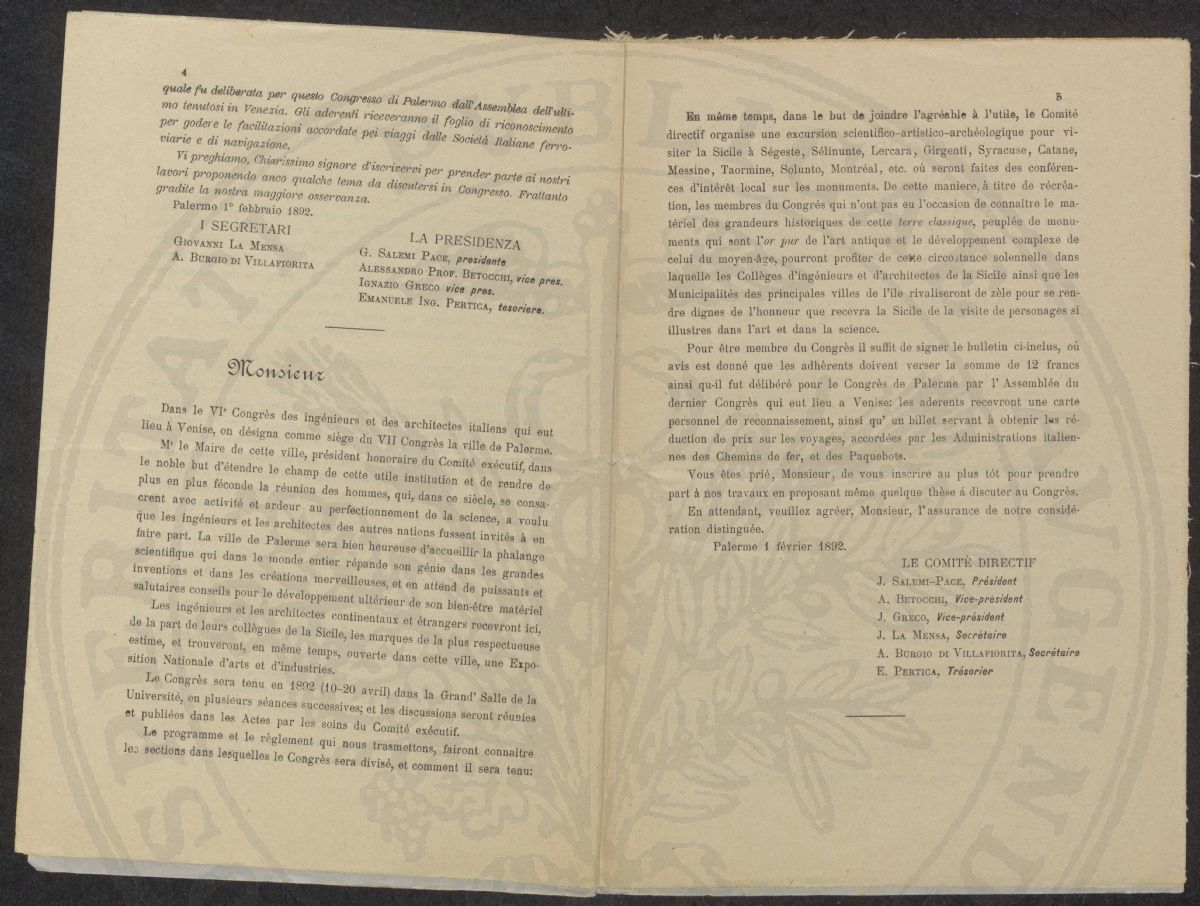 4
quale fu deliberata per questo Congresso di Palermo dall'Assemblea dell'ulti-
mo tenutosi in Venezia. Gli aderenti riceveranno il foglio di riconoscimento
per godere le facilitazioni accordate pei viaggi dalle Società Italiane ferro-
viarie e di navigazione.
Vi preghiamo, Chiarissimo signore d'iscrivervi per prender parte ai nostri
lavori proponendo anco qualche tema da discutersi in Congresso. Frattanto
gradite la nostra maggiore osservanza.
Palermo 1° febbraio 1892.
I SEGRETARI
GIOVANNI LA MENSA
A. BURGIO DI VILLAFIORITA
LA PRESIDENZA
G. SALEMI PACE, presidente
ALESSANDRO PROF. BETOCCHI, vice pres.
IGNAZIO GRECO vice pres.
EMANUELE ING. PERTICA, tesoriere.
Monsieur
Dans le VIe Congrès des ingénieurs et des architectes italiens qui eut
lieu à Venise, on désigna comme siége du VII Congrès la ville de Palerme.
Mr le Maire de cette ville, président honoraire du Comité exécutif, dans
le noble but d'étendre le champ de cette utile institution et de rendre de
plus en plus féconde la réunion des hommes, qui, dans ce siècle, se consa-
crent avec activité et ardeur au perfectionnement de la science, a voulu
que les ingénieurs et les architectes des autres nations fussent invités à en
faire part. La ville de Palerme sera bien heureuse d'accueillir la phalange
scientifique qui dans le monde entier répande son génie dans les grandes
inventions et dans les créations merveilleuses, et en attend de puissants et
salutaires conseils pour le développement ultérieur de son bien-être matériel
Les ingénieurs et les architectes continentaux et étrangers recevront ici,
de la part de leurs collègues de la Sicile, les marques de la plus respectueuse
estime, et trouveront, en même temps, ouverte dans cette ville, une Expo-
sition Nationale d'arts et d'industries.
Le Congrès sera tenu en 1892 (10-20 avril) dans la Grand' Salle de la
Université, en plusieurs séances successives; et les discussions seront réunies
et publiées dans les Actes par les soins du Comité exécutif.
Le programme et le règlement qui nous trasmettons, fairont connaitre
les sections dans lesquelles le Congrès sera divisé, et comment il sera tenu:
5
En même temps, dans le but de joindre l'agréable à l'utile, le Comité
directif organise une excursion scientifico-artistico-archéologique pour vi-
siter la Sicile à Ségeste, Sélinunte, Lercara, Girgenti, Syracuse, Catane,
Messine, Taormine, Solunto, Montréal, etc. où seront faites des conféren-
ces d'intérêt local sur les monuments. De cette maniere, à titre de récréa-
tion, les membres du Congrés qui n'ont pas eu l'occasion de connaître le ma-
tériel des grandeurs historiques de cette terre classique, peuplée de monu-
ments qui sont l'or pur de l'art antique et le développement complexe de
celui du moyen-âge, pourront profiter de cette circostance solennelle dans
laquelle les Collèges d'ingénieurs et d'architectes de la Sicile ainsi que les
Municipalités des principales villes de l'île rivaliseront de zèle pour se ren-
dre dignes de l'honneur que recevra la Sicile de la visite de personages si
illustres dans l'art et dans la science.
Pour être membre du Congrès il suffit de signer le bulletin ci-inclus, où
avis est donné que les adhèrents doivent verser la somme de 12 francs
ainsi qu-il fut délibéré pour le Congrès de Palerme par l' Assemblée du
dernier Congrès qui eut lieu a Venise: les aderents recevront une carte
personnel de reconnaissement, ainsi qu' un billet servant à obtenir les ré-
duction de prix sur les voyages, accordées par les Administrations italien-
nes des Chemins de fer, et des Paquebots.
Vous êtes prié, Monsieur, de vous inscrire au plus tôt pour prendre
part à nos travaux en proposant même quelque thèse á discuter au Congrès.
En attendant, veuillez agréer, Monsieur, l'assurance de notre considé-
ration distinguée.
Palerme 1 février 1892.
LE COMITÉ DIRECTIF
J. SALEMI-PACE, Président
A. BETOCCHI, Vice-président
J. GRECO, Vice-président
J. LA MENSA, Secrétaire
A. BURGIO DI VILLAFIORITA, Secrétaire
E. PERTICA, Trésorier